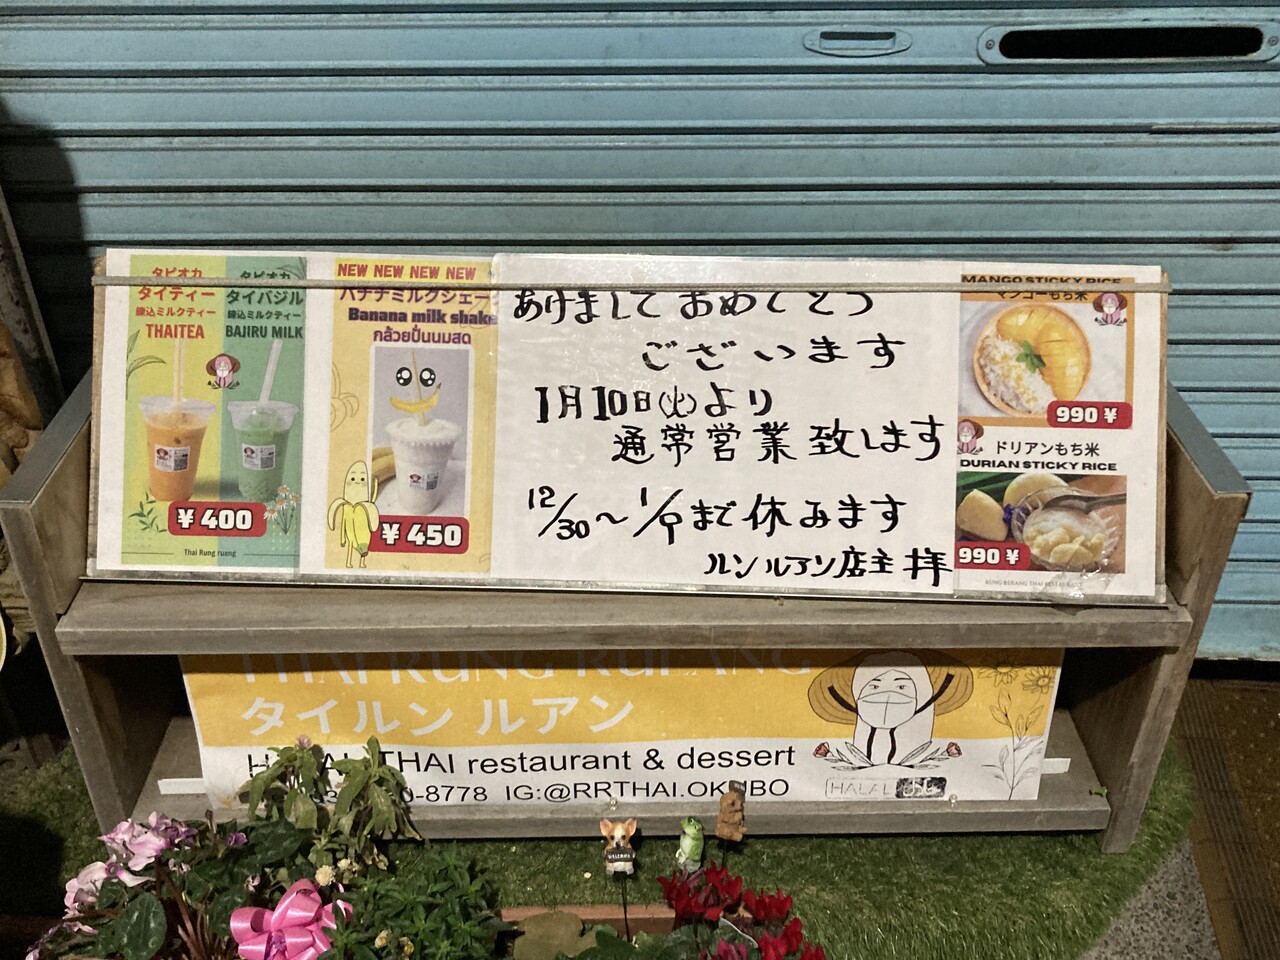 タピオカ
タイティー
練込ミルクティー
THAITEA
¥ 400
タピオカ
タイバジル
練込ミルクティー
BAJIRU MILK
Thai Rung rueang
NEW NEW NEW NEW
バナナミルクシェーク
Banana milk shake
กล้วยปั่นนมสด
¥ 450
あけましておめでとう
ございます
1月10日(火)より
通常営業致します
12/30～1/9まで休みます
ルンルアン店主 拝
MANGO STICKY RICE
マンゴーもち米
990 ¥
ドリアンもち米
DURIAN STICKY RICE
990 ¥
RUNG RUEANG THAI RESTAURANT
THAI RUNG RUEANG
タイルン ルアン
HALAL THAI restaurant & dessert
0-8778 IG:@RRTHAI.OKUBO
HALAL
WELCOME